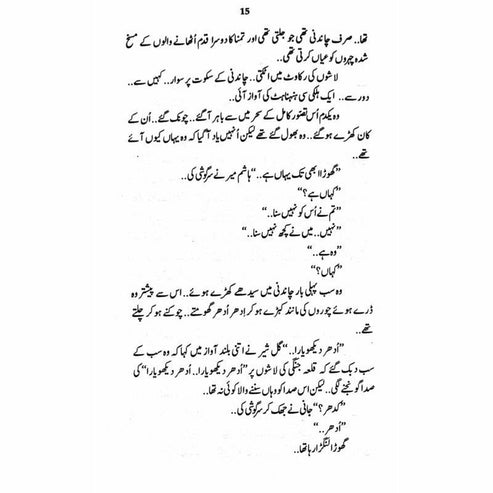 15
تھا.. صرف چاندنی تھی جو جلتی تھی اور تمنا کا دوسرا قدم اُٹھانے والوں کے مسخ
شدہ چہروں کو عیاں کرتی تھی..
لاشوں کی رکاوٹ میں اٹکتی.. چاندنی کے سکوت پر سوار.. کہیں سے..
دور سے.. ایک ہلکی سی ہنہناہٹ کی آواز آئی..
وہ یکدم اُس تصورِ کامل کے سحر میں سے باہر آ گئے.. چونک گئے.. اُن کے
کان کھڑے ہو گئے.. وہ بھول گئے تھے لیکن اُنہیں یاد آ گیا کہ وہ یہاں کیوں آئے
تھے..
”گھوڑا ابھی تک یہاں ہے..“ ہاشم میر نے سرگوشی کی..
”کہاں ہے؟“
”تم نے اُس کو نہیں سنا..“
”نہیں.. میں نے کچھ نہیں سنا..“
”وہ ہے..“
”کہاں؟“
وہ سب پہلی بار چاندنی میں سیدھے کھڑے ہوئے.. اس سے پیشتر وہ
ڈرے ہوئے چوروں کی مانند کبڑے ہو کر اِدھر اُدھر گھومتے.. چوکنے ہو کر چلتے
تھے..
”اُدھر دیکھو یارا..“ گل شیر نے اتنی بلند آواز میں کہا کہ وہ سب کے
سب دبک گئے کہ قلعہ جنگی کی لاشوں پر ”اُدھر دیکھو یارا.. اُدھر دیکھو یارا“ کی
صدا گونجنے لگی.. لیکن اس صدا کو وہاں سننے والا کوئی نہ تھا..
”کدھر؟“ جانی نے جھک کر سرگوشی کی..
”اُدھر..“
گھوڑا لنگڑا رہا تھا..